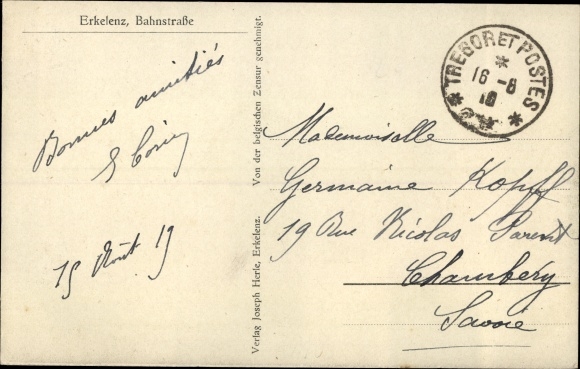 Erkelenz, Bahnstraße
Bonnes amitiés
15 Août 19
Verlag Joseph Herle, Erkelenz. Von der belgischen Zensur genehmigt.
* TRESOR ET POSTES *
*
16 -8
Mademoiselle
Germaine Kopff
19 Rue Nicolas Parent
Chambéry
Savoie